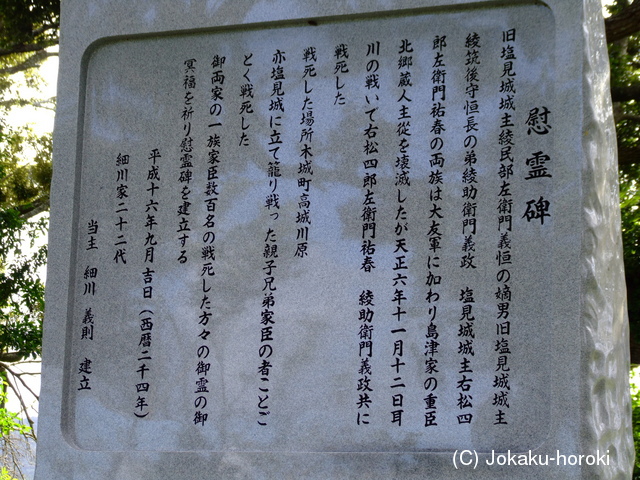 慰霊碑
旧塩見城城主綾民部左衛門義恒の嫡男旧塩見城城主
綾筑後守恒長の弟綾助衛門義政　塩見城城主右松四
郎左衛門祐春の両族は大友軍に加わり島津家の重臣
北郷蔵人主従を壊滅したが天正六年十一月十二日耳
川の戦いて右松四郎左衛門祐春　綾助衛門義政共に
戦死した
戦死した場所木城町高城川原
亦塩見城に立て籠り戦った親子兄弟家臣の者ことご
とく戦死した
御両家の一族家臣数百名の戦死した方々の御霊の御
冥福を祈り慰霊碑を建立する
平成十六年九月吉日（西暦二千四年）
細川家二十二代
当主　細川　義則　建立
(C) Jokaku-horoki